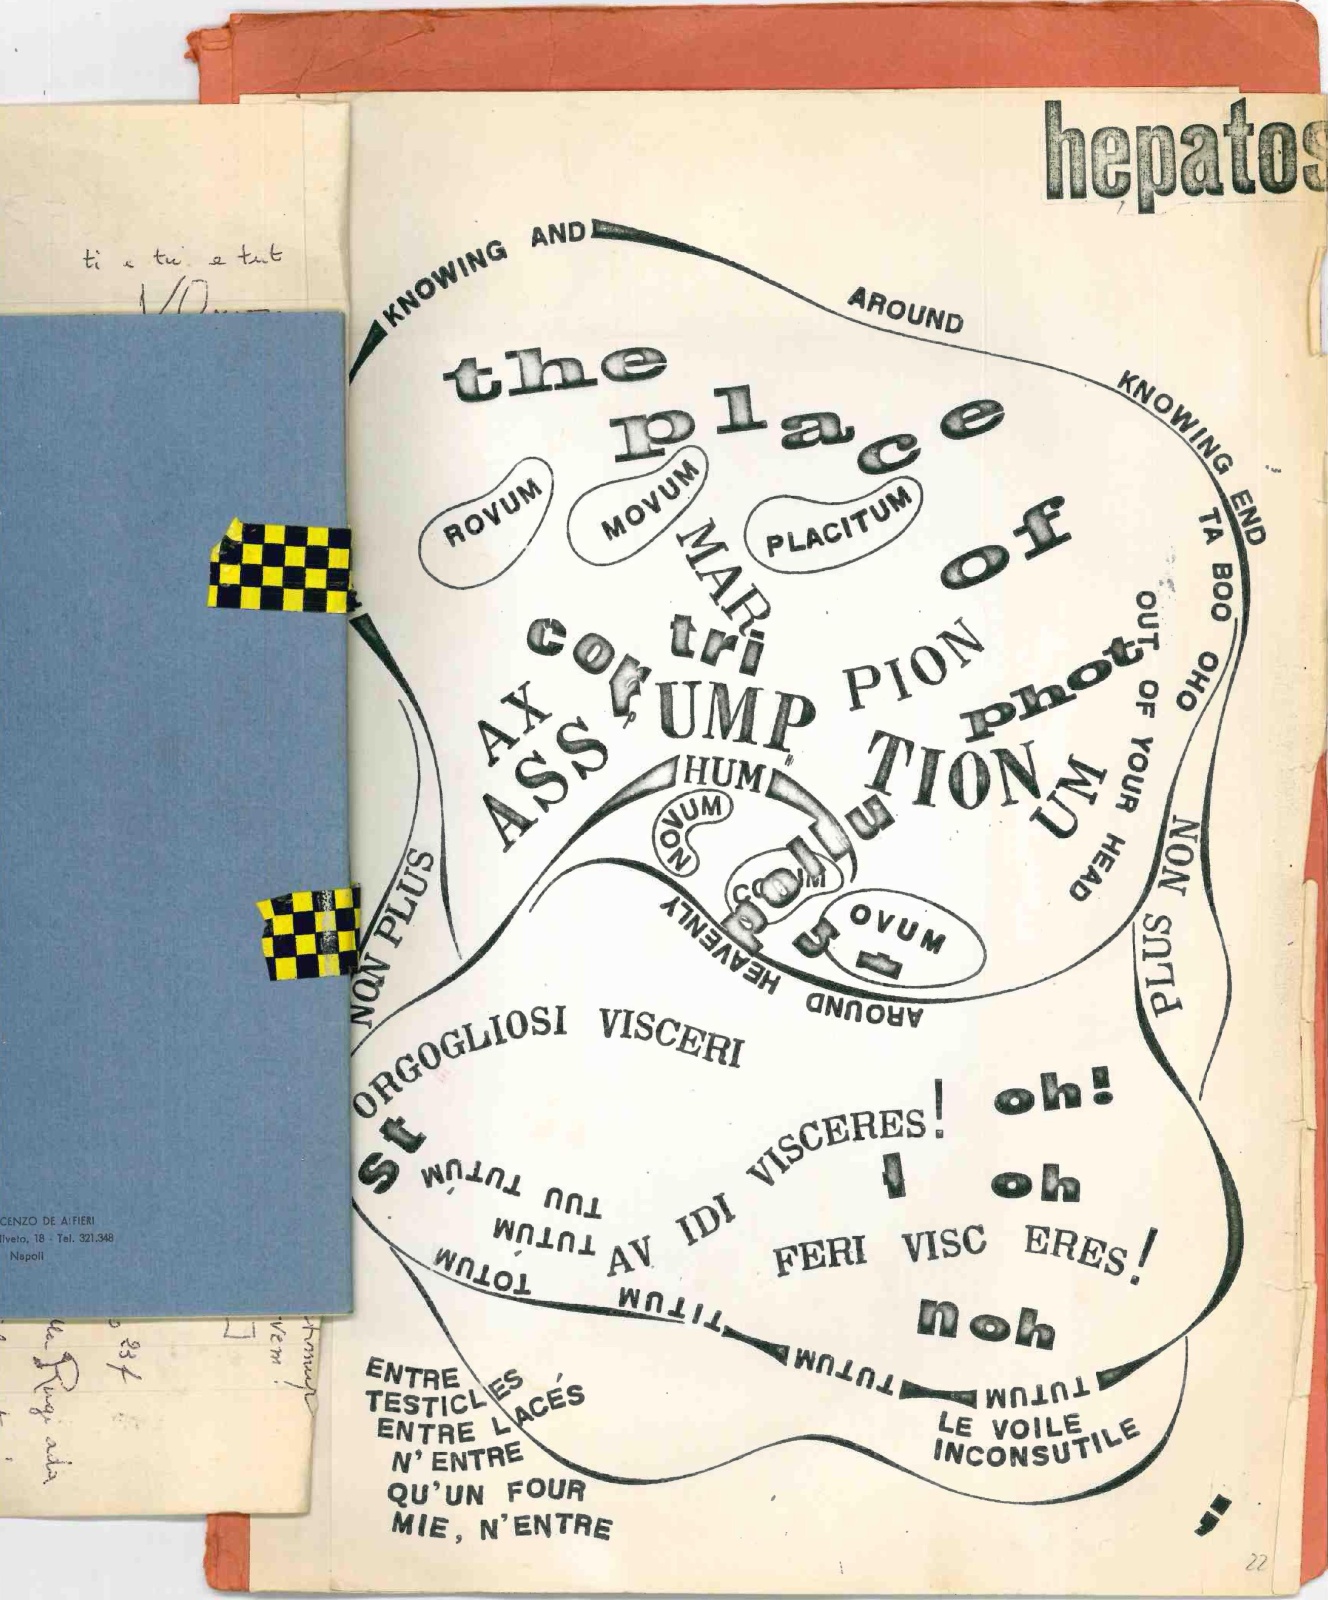 hepatos
ti e tu e tut
KNOWING AND
AROUND
KNOWING END
TA BOO OHO
the
place
of
ROVUM
MOVUM
PLACITUM
MAR
cor
tri
UMP
PION
phot
AX
ASS
TION
UM
OUT OF YOUR HEAD
HUM
NOVUM
OVUM
HEAVENLY
AROUND
NON PLUS
PLUS NON
ORGOGLIOSI VISCERI
st
VISCERES!
oh!
I oh
TUTUM TUU
TUTUM
TOTUM
AV IDI
FERI VISC ERES!
noh
TITUM
TUTUM
TUTUM
ENTRE
TESTICLES
ENTRE LACÉS
N'ENTRE
QU'UN FOUR
MIE, N'ENTRE
LE VOILE
INCONSUTILE
;
22
CENZO DE ALFIERI
liveto, 18 - Tel. 321.348
Napoli
237
vem!